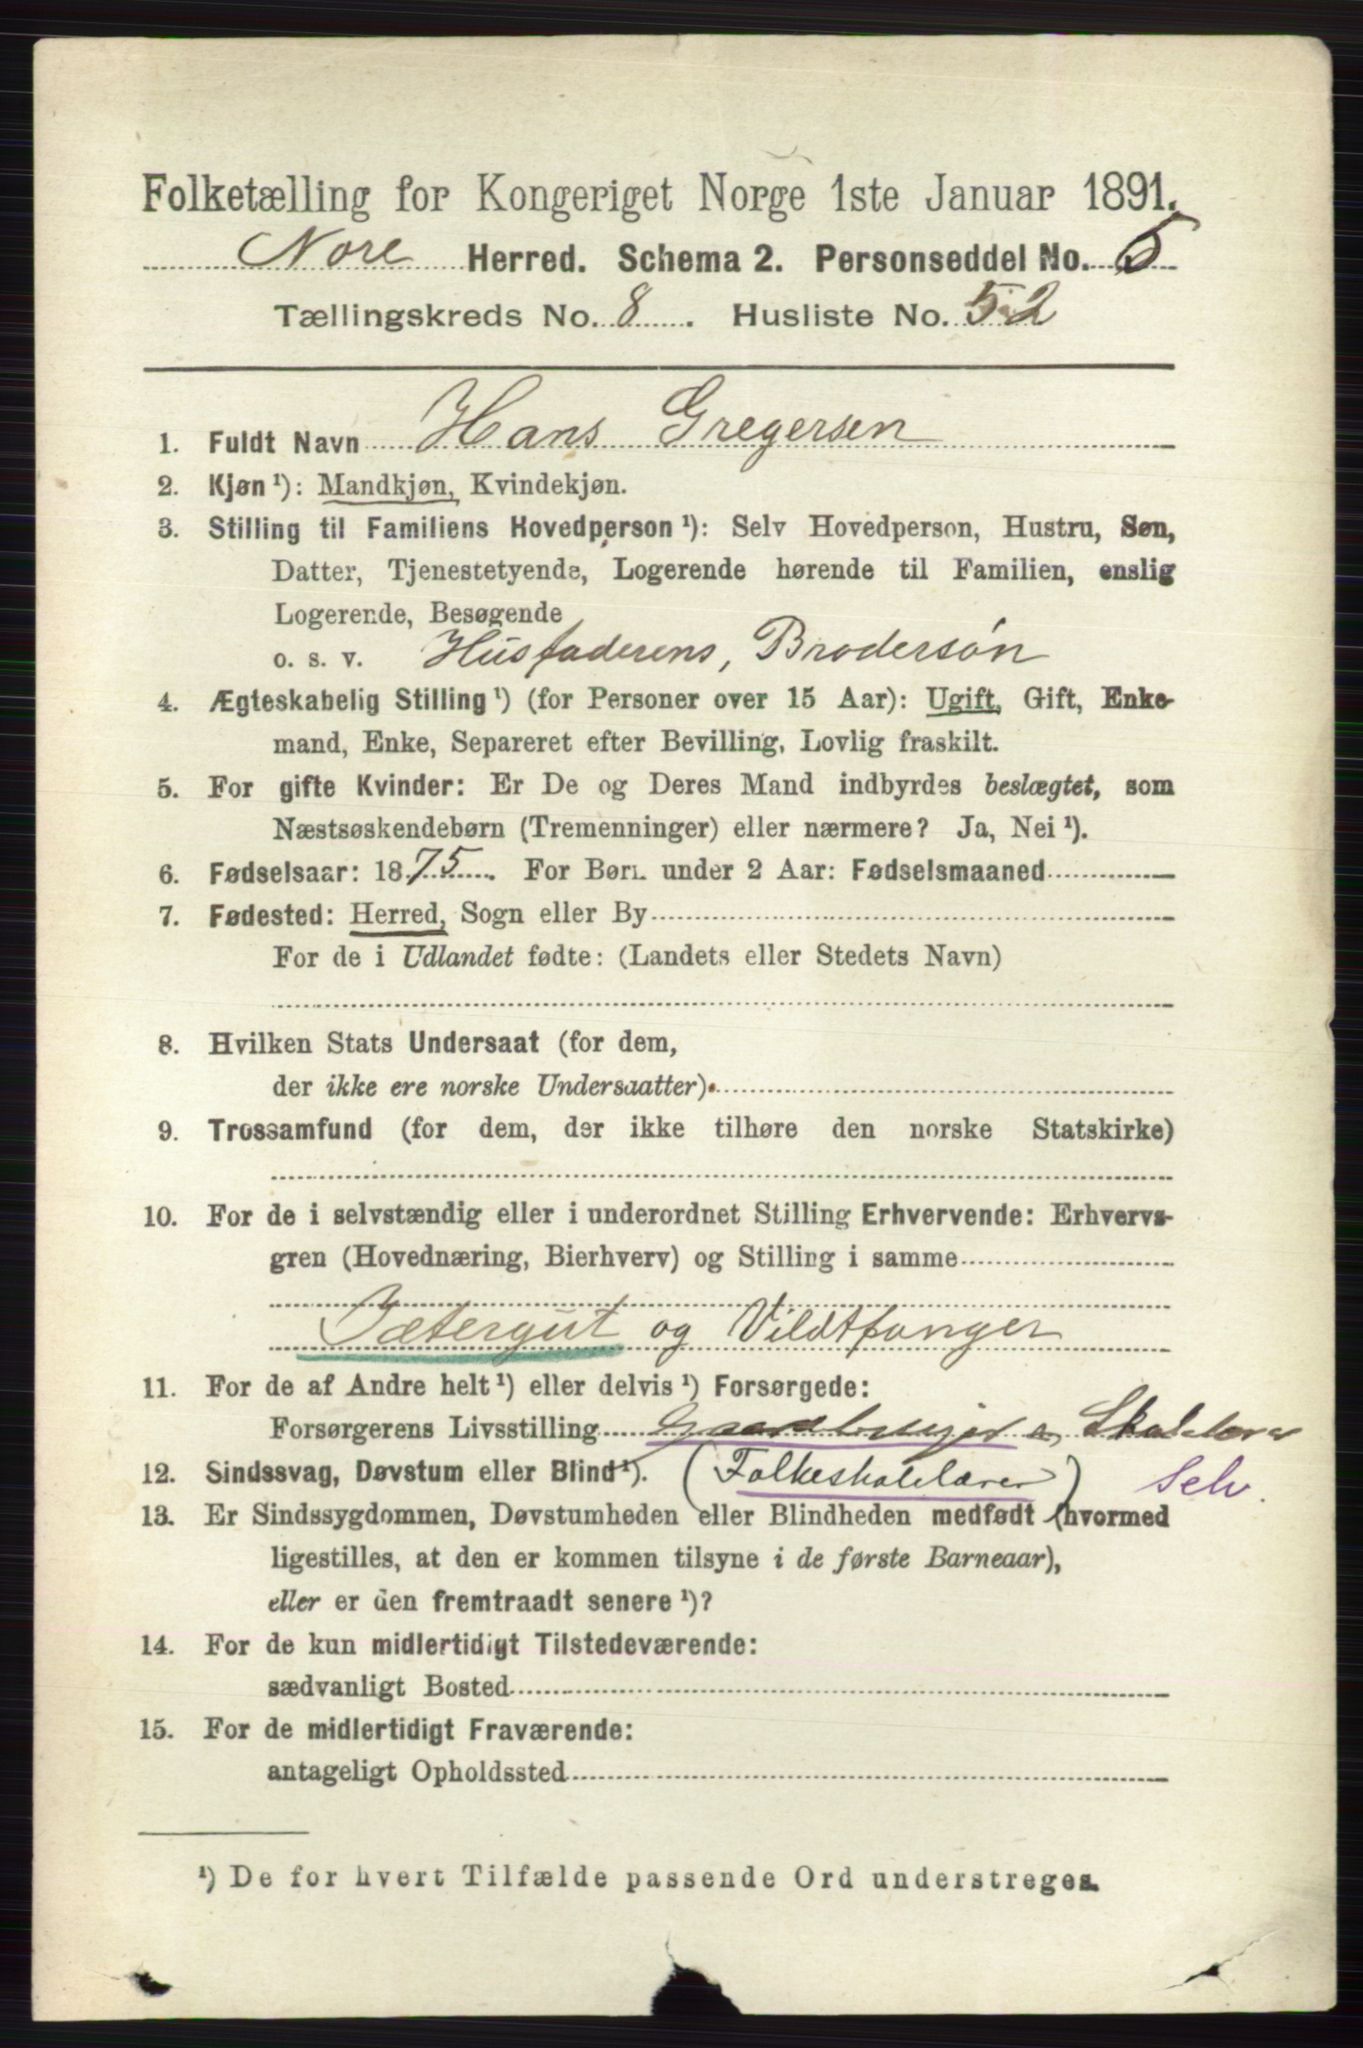 Folketælling for Kongeriget Norge 1ste Januar 1891.
Nore Herred. Schema 2. Personseddel No. 5
Tællingskreds No. 8. Husliste No. 52
1. Fuldt Navn Hans Gregersen
2. Kjøn ¹): Mandkjøn, Kvindekjøn.
3. Stilling til Familiens Hovedperson ¹): Selv Hovedperson, Hustru, Søn,
Datter, Tjenestetyende, Logerende hørende til Familien, enslig
Logerende, Besøgende
o. s. v. Husfaderens, Brodersøn
4. Ægteskabelig Stilling ¹) (for Personer over 15 Aar): Ugift, Gift, Enke-
mand, Enke, Separeret efter Bevilling, Lovlig fraskilt.
5. For gifte Kvinder: Er De og Deres Mand indbyrdes beslægtet, som
Næstsøskendebørn (Tremenninger) eller nærmere? Ja, Nei ¹).
6. Fødselsaar: 1875. For Børn under 2 Aar: Fødselsmaaned
7. Fødested: Herred, Sogn eller By
For de i Udlandet fødte: (Landets eller Stedets Navn)
8. Hvilken Stats Undersaat (for dem,
der ikke ere norske Undersaatter).
9. Trossamfund (for dem, der ikke tilhøre den norske Statskirke)
10. For de i selvstændig eller i underordnet Stilling Erhvervende: Erhvervs-
gren (Hovednæring, Bierhverv) og Stilling i samme
Jætergut og Vildtfanger
11. For de af Andre helt ¹) eller delvis ¹) Forsørgede:
Forsørgerens Livsstilling Gaardbruger Skolelærer
12. Sindssvag, Døvstum eller Blind ¹). (Folkeskolelærer) Selv.
13. Er Sindssygdommen, Døvstumheden eller Blindheden medfødt (hvormed
ligestilles, at den er kommen tilsyne i de første Barneaar),
eller er den fremtraadt senere ¹)?
14. For de kun midlertidigt Tilstedeværende:
sædvanligt Bosted
15. For de midlertidigt Fraværende:
antageligt Opholdssted
¹) De for hvert Tilfælde passende Ord understreges.